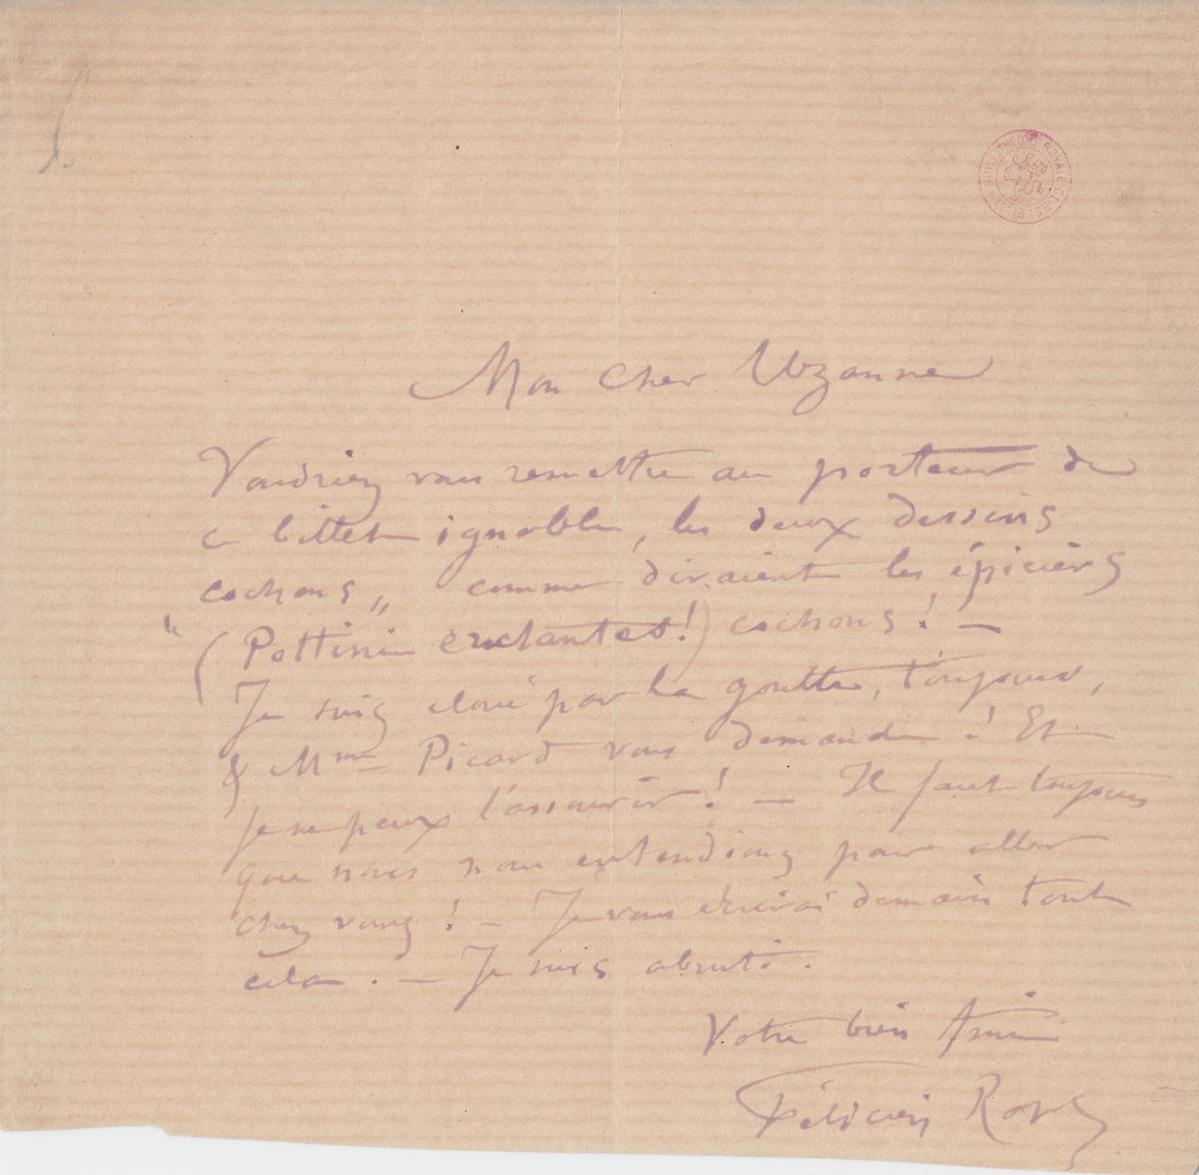 BIBLIOTHÈQUE ROYALE DE BELGIQUE
Mon Cher Uzanne
Voudriez vous remettre au porteur de
ce billet ignoble, les deux dessins
cochons „ comme diraient les épiciers
“ (Pottini !) cochons ! —
Je suis cloué par la goutte, toujours,
& Mme Picard vous demande ! Et
je ne peux l'assouvir ! — Il faut toujours
que nous nous entendions pour aller
chez vous ! — Je vous écrirai demain tout
cela . — Je suis abruti .
Votre bien ami
Félicien Rops